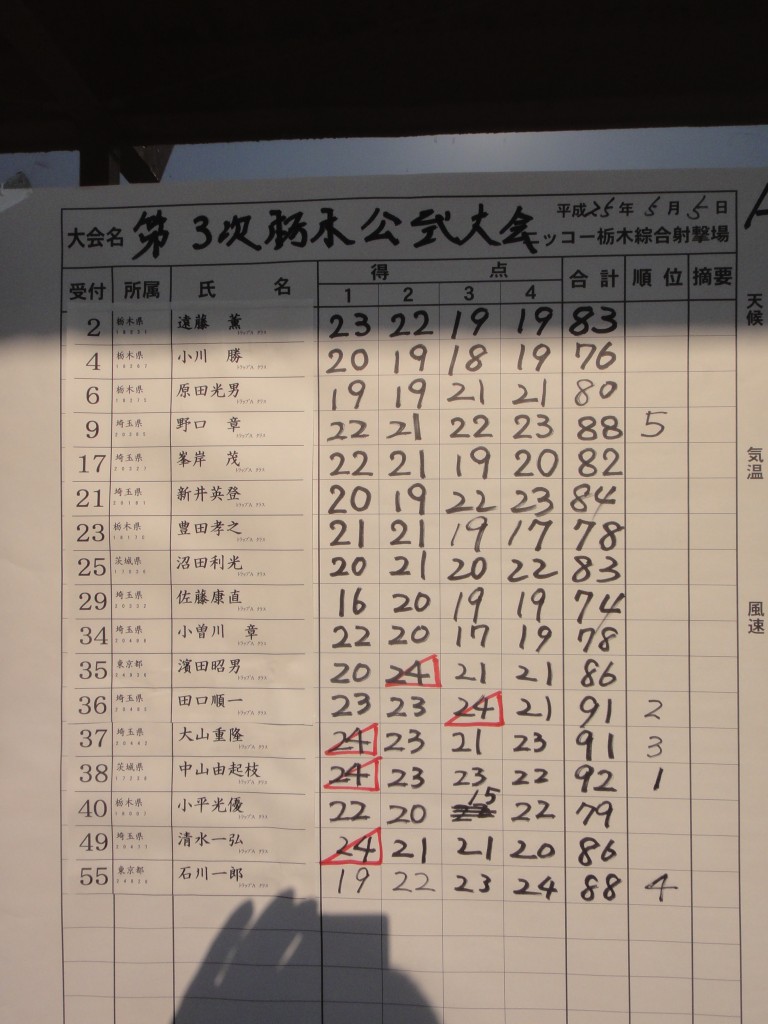 平成25年5月5日
大会名 第3次栃木公式大会 ニッコー栃木綜合射撃場
得点
受付 所属 氏名 1 2 3 4 合計 順位 摘要
2 栃木県 遠藤 薫 23 22 19 19 83
4 栃木県 小川 勝 20 19 18 19 76
6 栃木県 原田光男 19 19 21 21 80
9 埼玉県 野口 章 22 21 22 23 88 5
17 埼玉県 峯岸 茂 22 21 19 20 82
21 埼玉県 新井英登 20 19 22 23 84
23 栃木県 豊田孝之 21 21 19 17 78
25 茨城県 沼田利光 20 21 20 22 83
29 埼玉県 佐藤康直 16 20 19 19 74
34 埼玉県 小曽川 章 22 20 17 19 78
35 東京都 濱田昭男 20 24 21 21 86
36 埼玉県 田口順一 23 23 24 21 91 2
37 埼玉県 大山重隆 24 23 21 23 91 3
38 茨城県 中山由起枝 24 23 23 22 92 1
40 栃木県 小平光優 22 20 15 22 79
49 埼玉県 清水一弘 24 21 21 20 86
55 東京都 石川一郎 19 22 23 24 88 4
天候
気温
風速